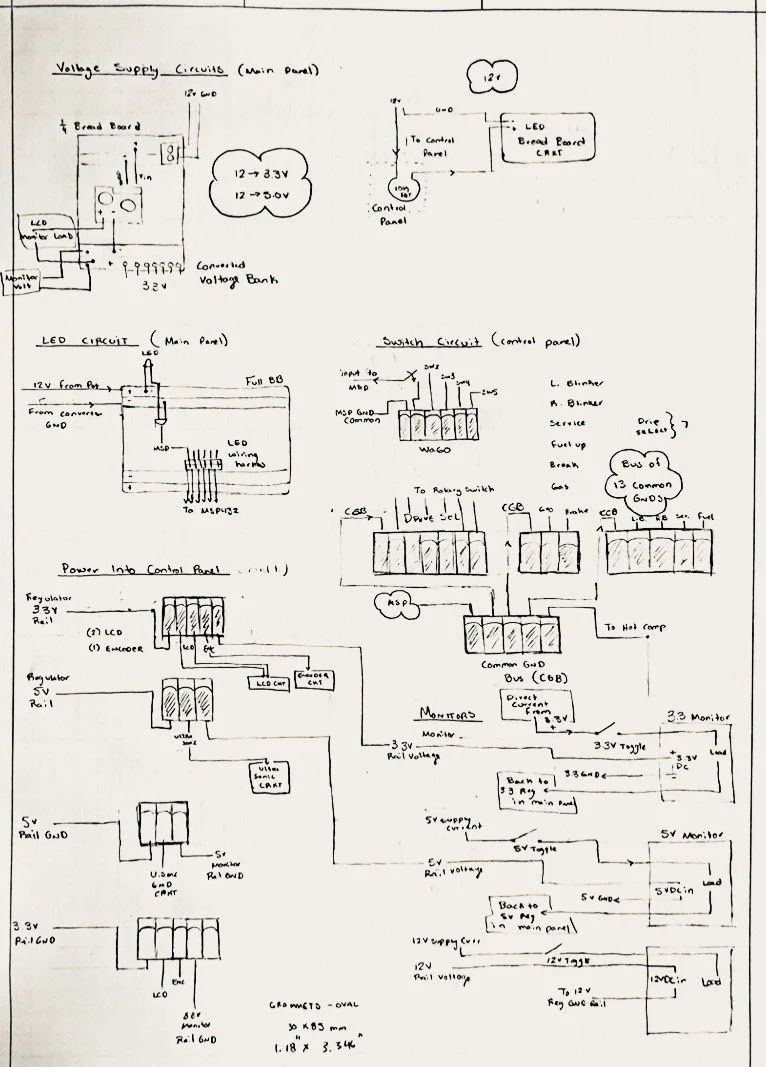 Voltage Supply Circuits (Main Panel)
12V GND
1/4 Bread Board
Vin
12 → 3.3V
12 → 5.0V
LCD
Monitor Load
Monitor
Volt
3.3V
Converted
Voltage Bank
12V
12V
GND
LED
Bread Board
CRKT
To Control
Panel
Control
Panel
LED CIRCUIT (Main Panel)
LED
Full BB
12V From Pot
From converter
GND
MSP
LED
wiring
harness
To MSP432
Switch Circuit (control panel)
input to
MSP
SW2
SW3
SW4
SW5
MSP GND
Common
WAGO
L. Blinker
R. Blinker
Service
Fuel up
Break
Gas
Bus of
13 Common
GNDS
To Rotary Switch
CGB
Drive Sel
CGB
Gas
Brake
L.B.
R.B
Ser.
Fuel
MSP
To Not Comp
Common GND
Bus (CGB)
Power Into Control Panel
Regulator
3.3V
Rail
(2) LCD
(1) ENCODER
LCD
Enc
LCD CKT
ENCODER
CKT
Regulator
5V
Rail
ULTRA
SONIC
Ultra
Sonic
CRKT
5V
Rail GND
U.Sonic
GND
CRKT
5V
Monitor
Rail GND
3.3V
Rail GND
LCD
Enc
Monitor
Rail GND
MONITORS
Direct
Current
From
3.3V
+
3.3V Toggle
3.3 Monitor
Load
Monitor
3.3V
Rail Voltage
3.3V
DC
3.3 GND
Back to
3.3 Reg
in main Panel
5V Supply
Current
5V Toggle
5V Monitor
Load
5V
Rail Voltage
5VDCin
5V GND
Back to
5V Reg
in main panel
12V Supply Curr
12V Toggle
12V
Rail Voltage
12VDCin
Load
To 12V
Reg GND Rail
GROMMETS - OVAL
30 X 85 mm
1.18" X 3.346"